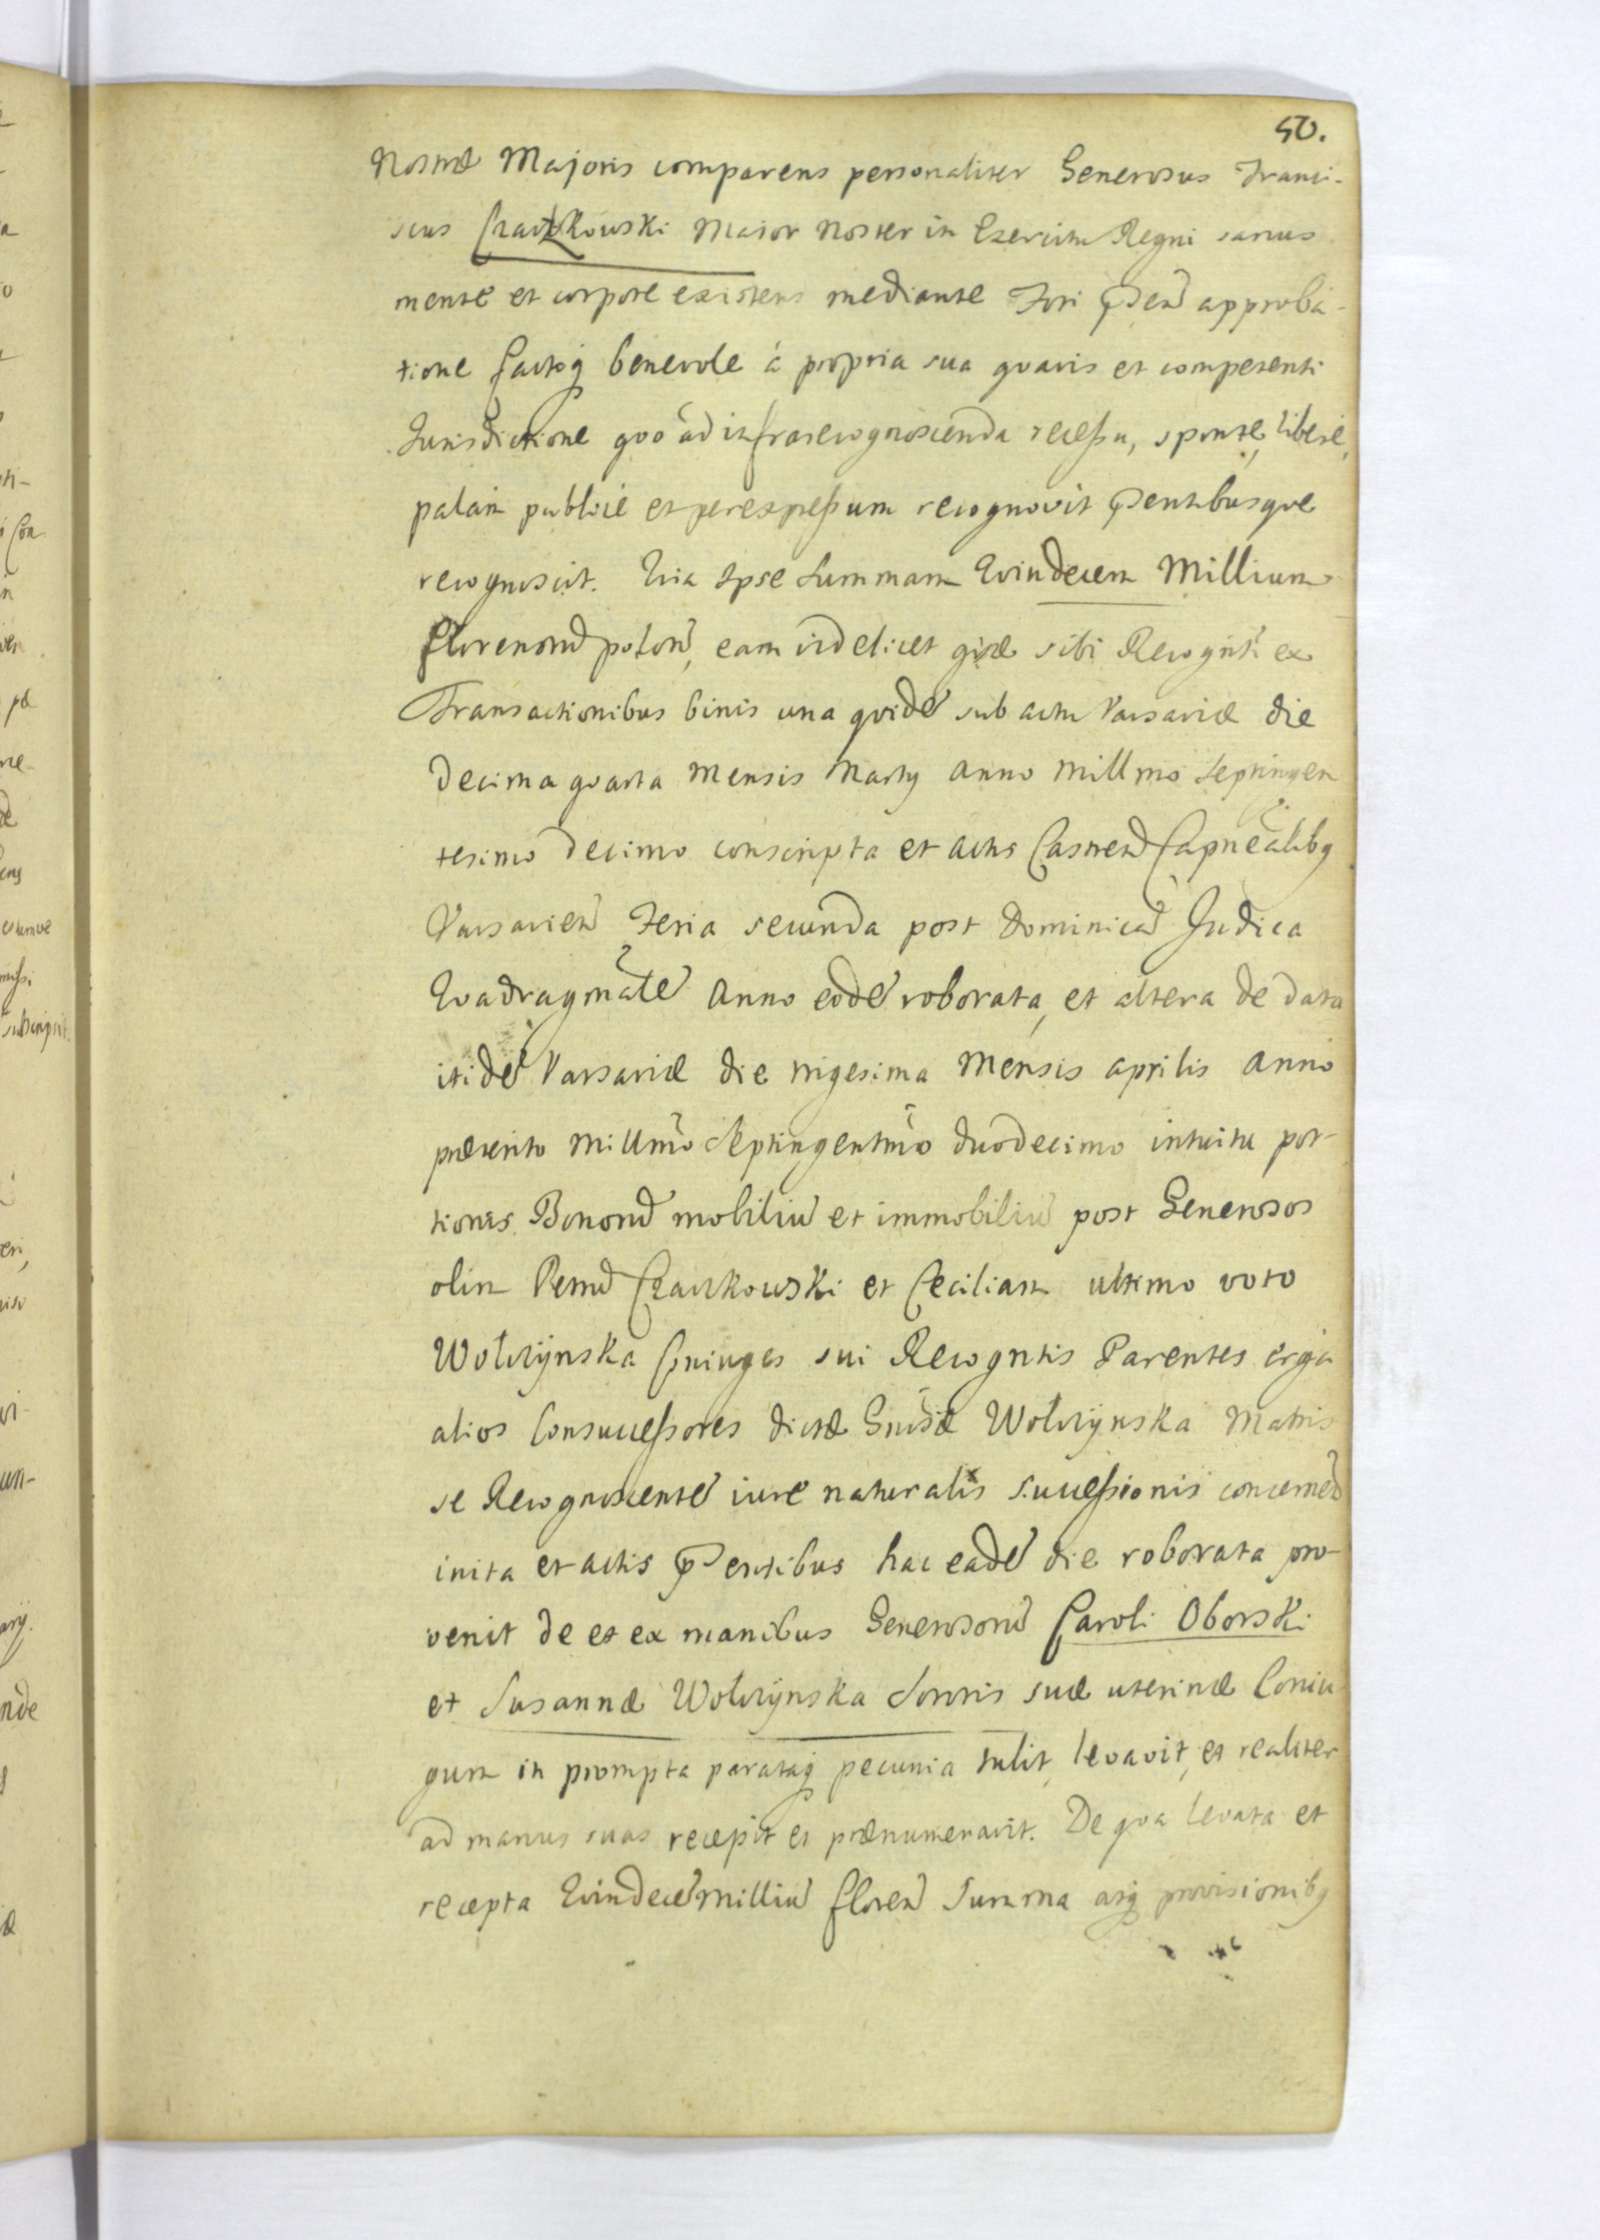 50.
Nostræ Majoris comparens personaliter Generosus Franci-
scus Czaczkowski Maior Noster in Exercitu Regni sanus
mente et corpore existens mediante Fori p̃sen̄ approba-
tione factoq̨ benevole à propria sua quavis et competenti
Jurisdictione quo ad infrarecognoscenda recessu, sponte, libere,
palam publice et per expressum recognovit p̃sentibusque
recognoscit. Quia Ipse Summam Quindecem Millium
Florenorū polon̄, eam videlicet quæ sibi Recognti ex
Transactionibus binis una quidē sub actu Varsaviæ die
decima quarta Mensis Marty Anno Millmo Septingen
tesimo decimo conscripta et actis Castren̄ Capnealibq̨
Varsavien̄ Feria secunda post Dominicā Judica
Quadragmālē Anno eodē roborata, et altera de data
itidē Varsaviæ die vigesima Mensis aprilis anno
præterito Millm̄o Septingentm̄o duodecimo intuitu por-
tionis Bonorū mobiliū et immobiliū post Generosos
olim Petrū Czaczkowski et Ceciliam ultimo voto
Wolczÿnska Coniuges sui Recogntis Parentes erga
alios Consuccessores dictæ Gnĩsæ Wolczÿnska Matris
se Recognoscentē iure naturalis successionis concernen̄
inita et actis p̃sentibus hac eadē die roborata pro-
venit de et ex manibus Generosorū Caroli Oborski
et Susannæ Wolczÿnska Sororis suæ uterinæ Coniu
gum in prompta parataq̨ pecunia tulit, levavit, et realiter
ad manus suas recepit et prænumeravit. De qua levata et
recepta Quindecē milliū floren̄ Summa atq̨ provisionibq̨